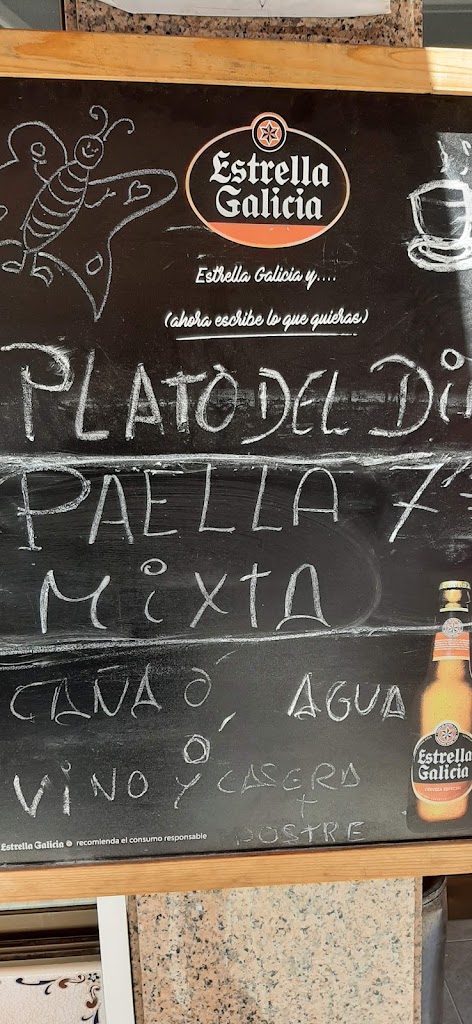 Estrella
Galicia
Estrella Galicia y....
(ahora escribe lo que quieras)
PLATO DEL Di
PAELLA 7'
MiXTA
CAÑA Ó AGUA
Ó
ViNO Y CASERA
+
POSTRE
Estrella
Galicia
CERVEZA ESPECIAL
Estrella Galicia recomienda el consumo responsable